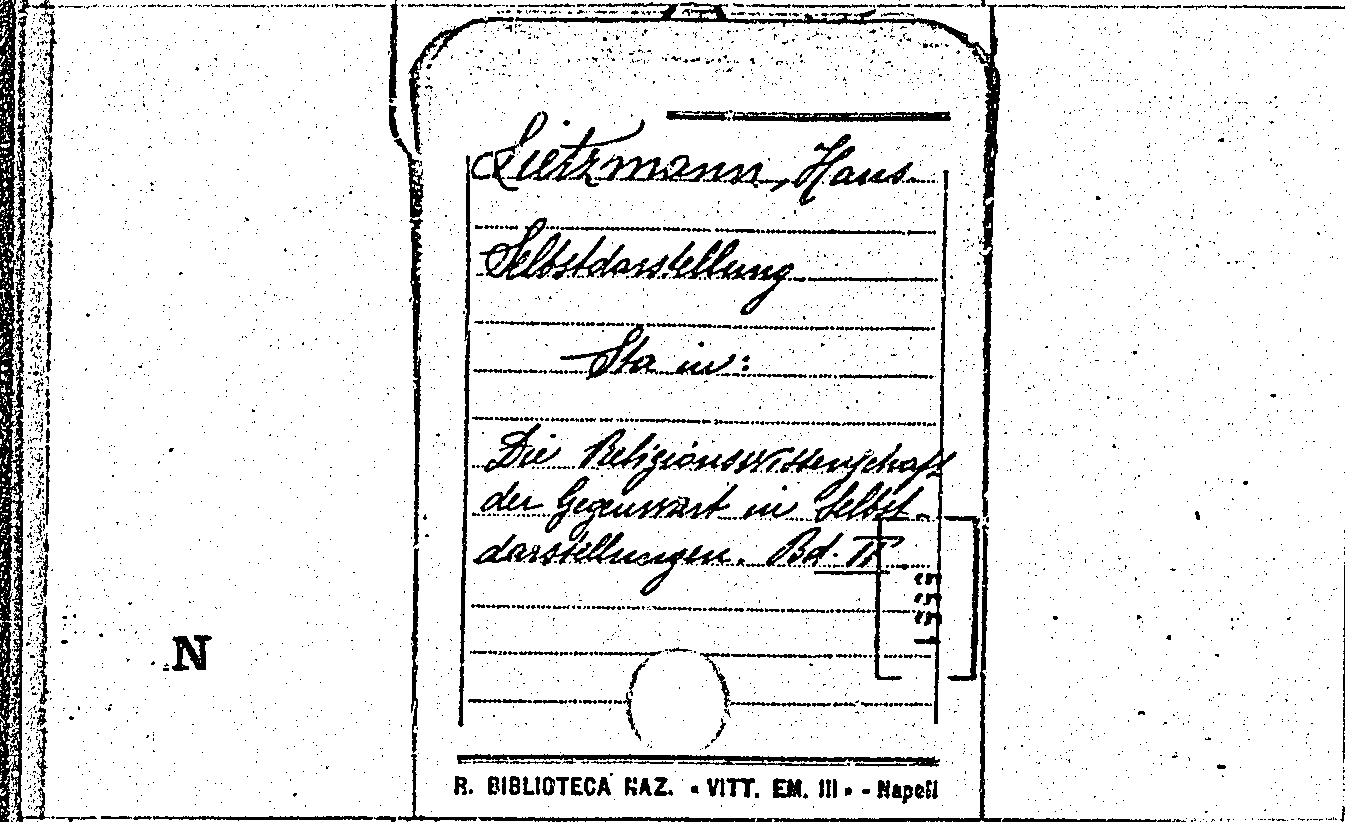 Lietzmann, Hans
Selbstdarstellung
Sta in:
Die Religionswissenschaft
der Gegenwart in Selbst-
darstellungen. Bd. II
1333
N
R. BIBLIOTECA NAZ. « VITT. EM. III » - Napoli